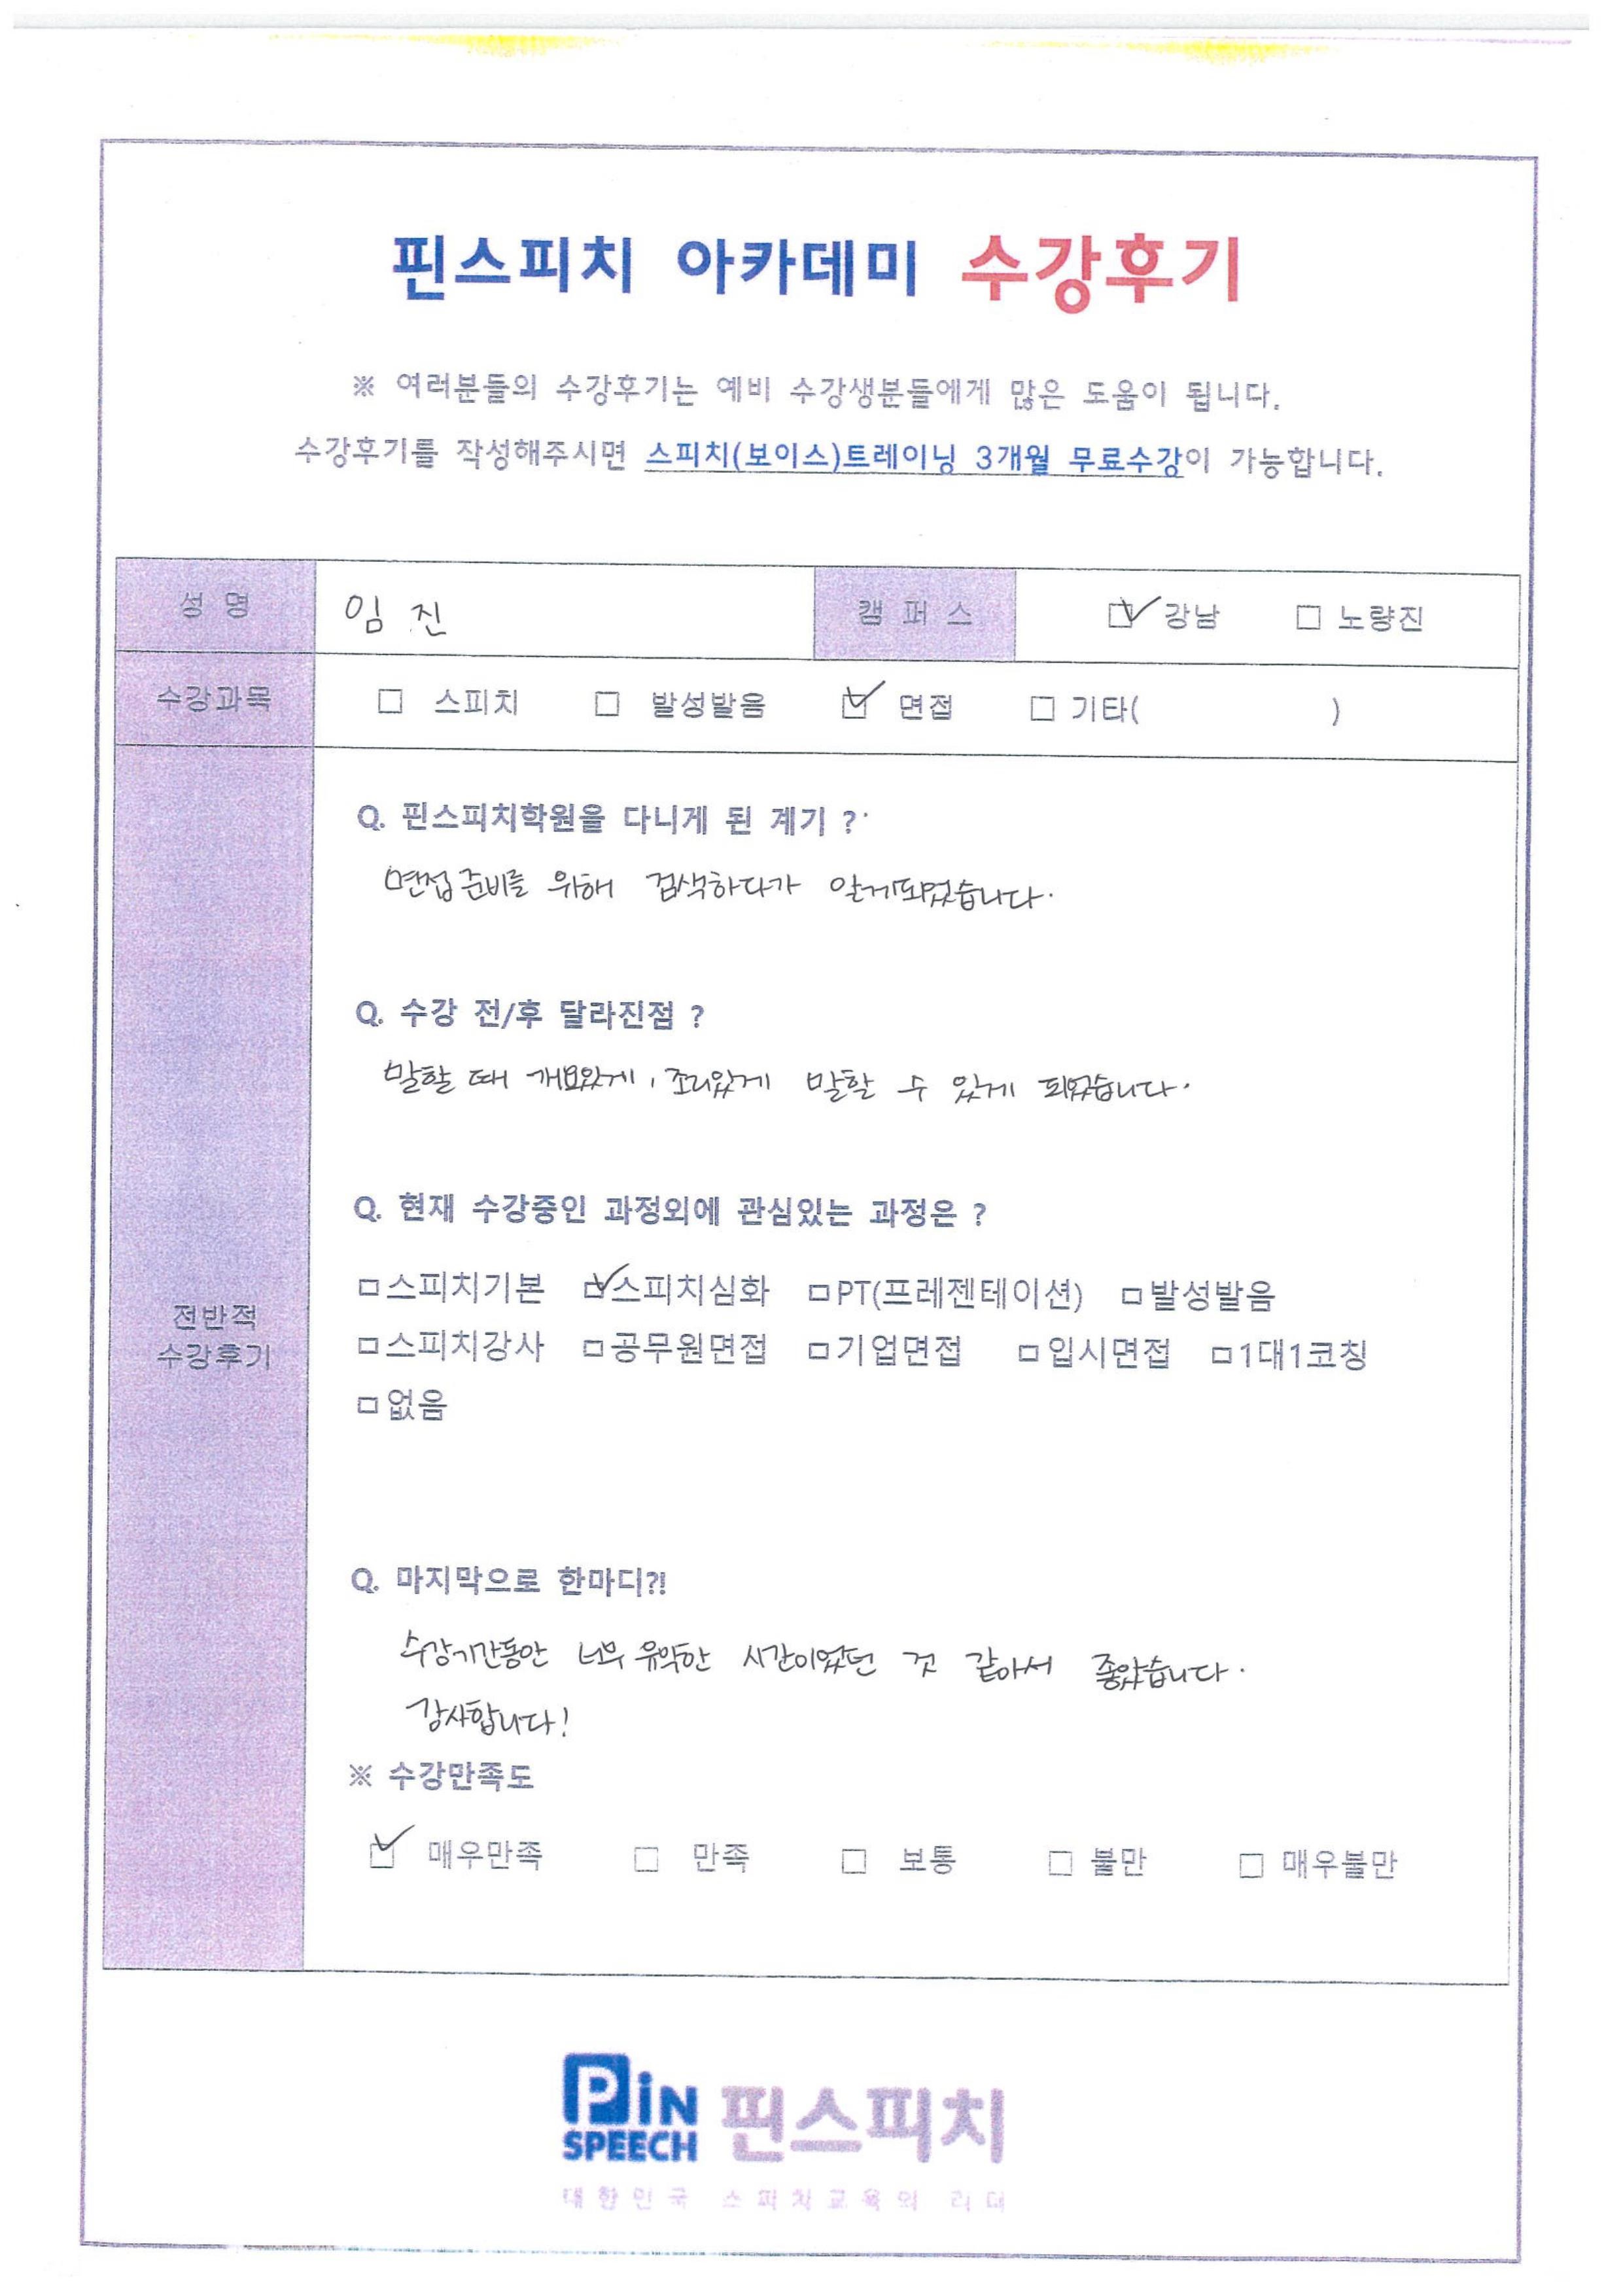 핀스피치 아카데미 수강후기
※ 여러분들의 수강후기는 예비 수강생분들에게 많은 도움이 됩니다.
수강후기를 작성해주시면 스피치(보이스)트레이닝 3개월 무료수강이 가능합니다.
성 명 임 진 캠 퍼 스 ☑ 강남 □ 노량진
수강과목 □ 스피치 □ 발성발음 ☑ 면접 □ 기타( )
Q. 핀스피치학원을 다니게 된 계기 ?
면접준비를 위해 검색하다가 알게되었습니다.
Q. 수강 전/후 달라진점 ?
말할 때 개요있게, 조리있게 말할 수 있게 되었습니다.
Q. 현재 수강중인 과정외에 관심있는 과정은 ?
□스피치기본 ☑스피치심화 □PT(프레젠테이션) □발성발음
전반적
수강후기
□스피치강사 □공무원면접 □기업면접 □입시면접 □1대1코칭
□없음
Q. 마지막으로 한마디?!
수강기간동안 너무 유익한 시간이었던 것 같아서 좋았습니다.
감사합니다!
※ 수강만족도
☑ 매우만족 □ 만족 □ 보통 □ 불만 □ 매우불만
PiN
SPEECH
핀스피치
대한민국 스피치교육의 리더